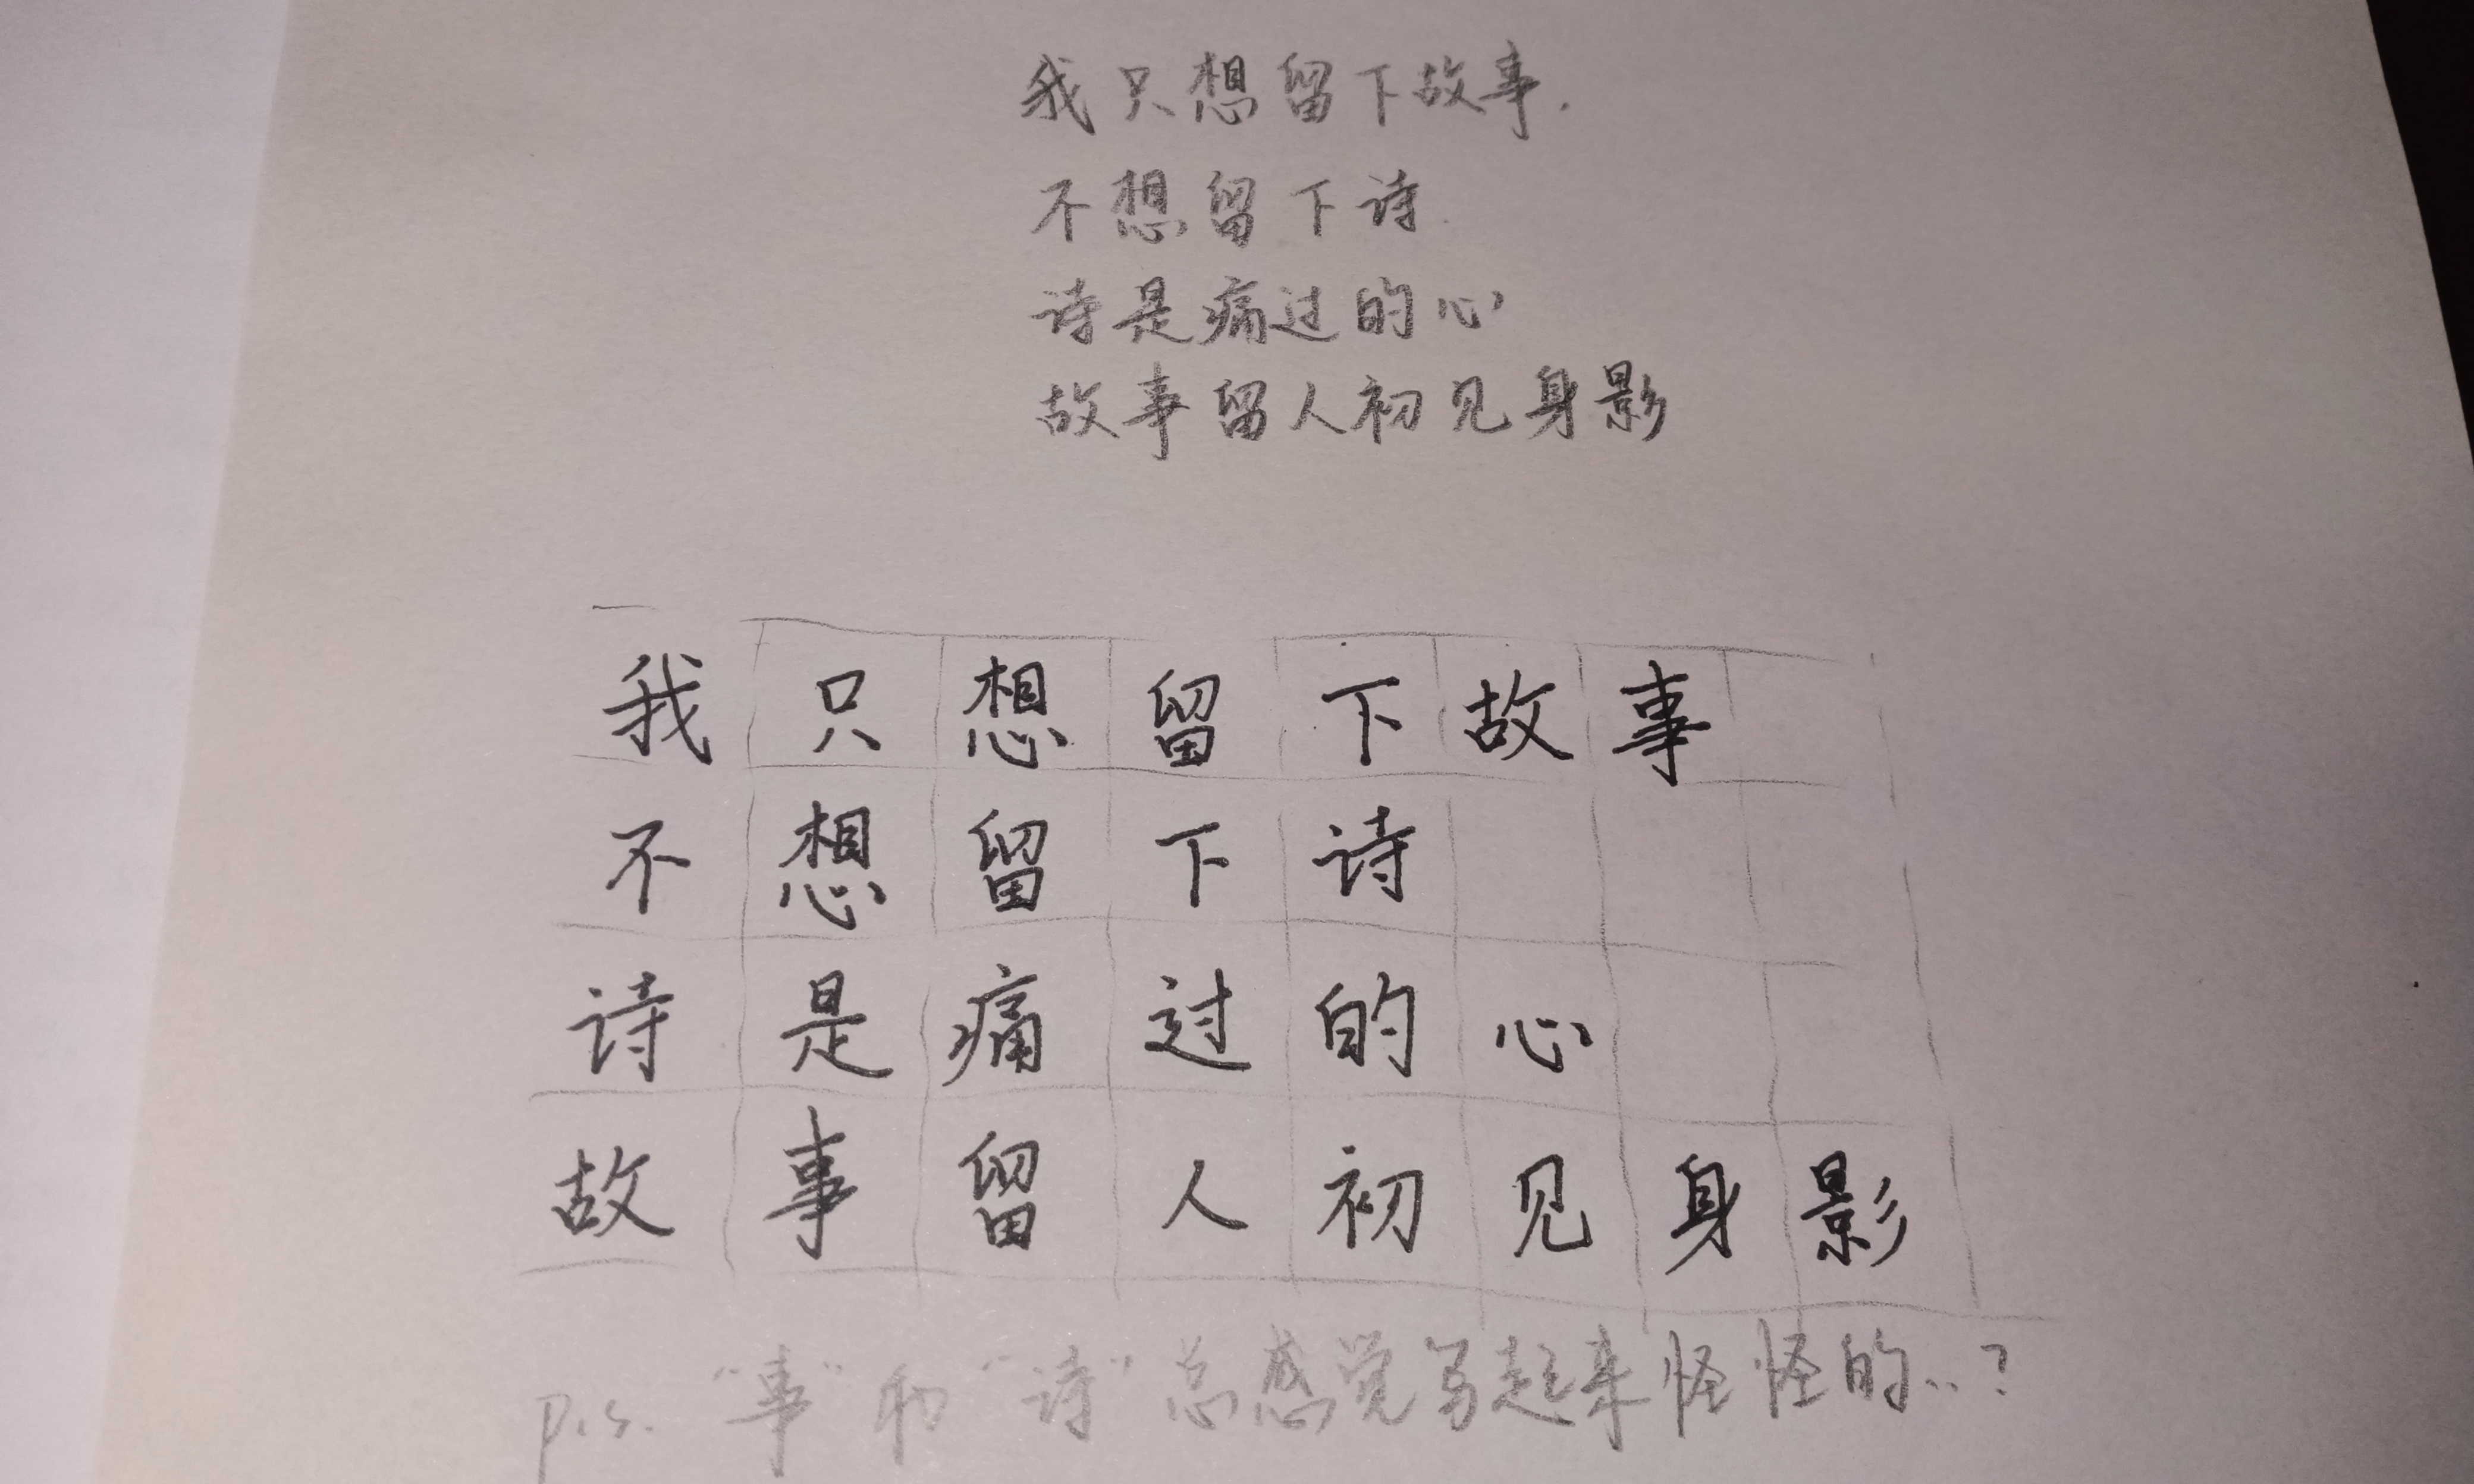 我只想留下故事.
不想留下诗.
诗是痛过的心
故事留人初见身影
我只想留下故事
不想留下诗
诗是痛过的心
故事留人初见身影
p.s. "事"和"诗"总感觉写起来怪怪的..?